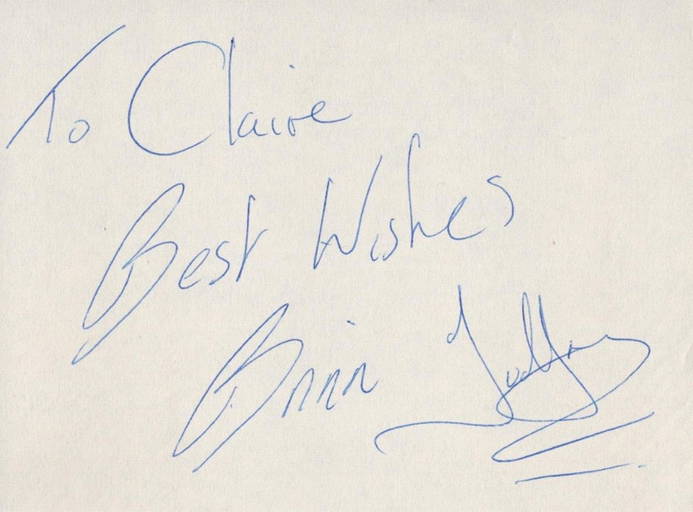 To Claire
Best Wishes
Brian